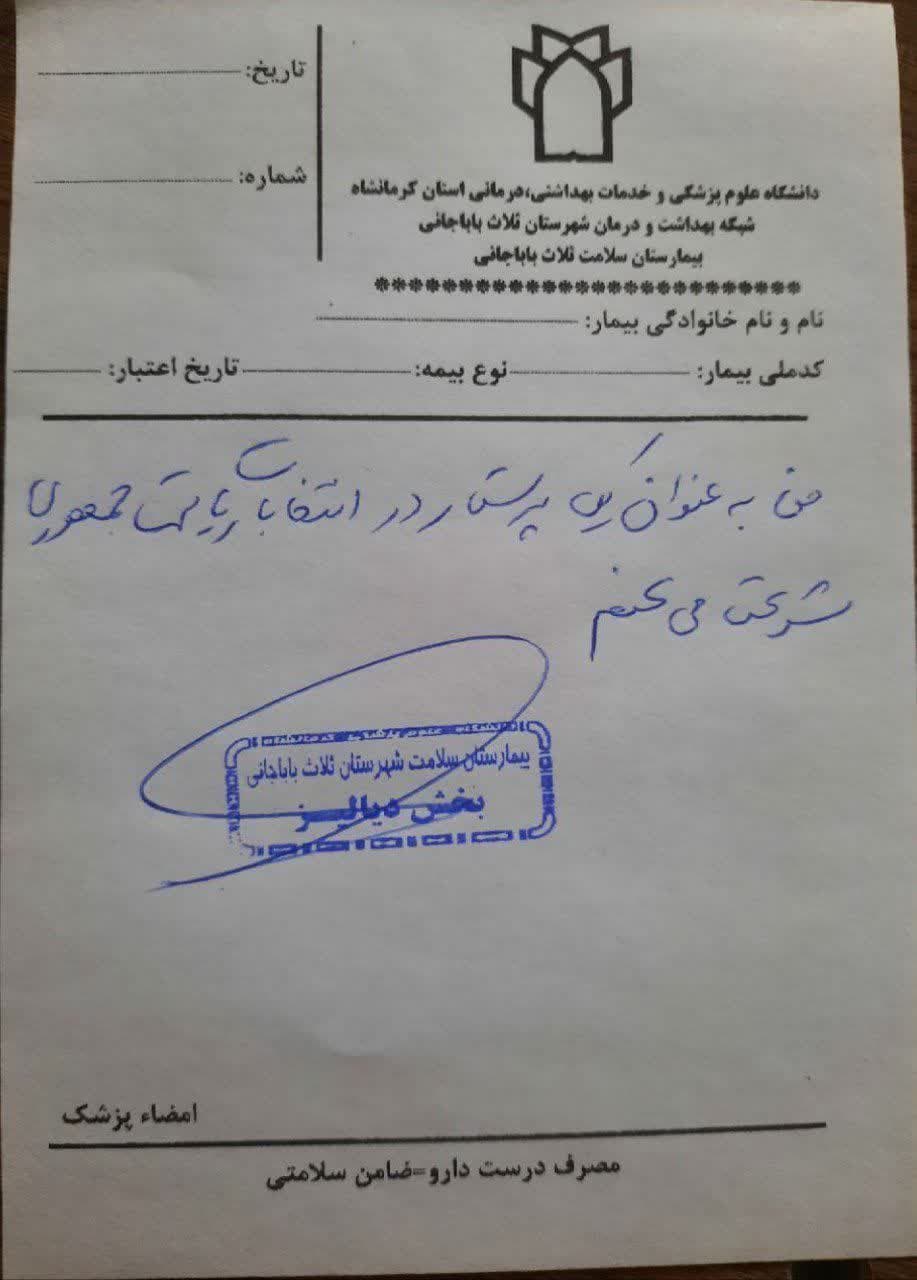 تاریخ:
شماره:
دانشگاه علوم پزشکی و خدمات بهداشتی،درمانی استان کرمانشاه
شبکه بهداشت و درمان شهرستان ثلاث باباجانی
بیمارستان سلامت ثلاث باباجانی
*************************
نام و نام خانوادگی بیمار:
کدملی بیمار: نوع بیمه: تاریخ اعتبار:
من به عنوان یک پرستار در انتخابات ریاست جمهوری
شرکت می کنم
دانشگاه علوم پزشکی کرمانشاه
بیمارستان سلامت شهرستان ثلاث باباجانی
بخش دیالیز
امضاء پزشک
مصرف درست دارو=ضامن سلامتی